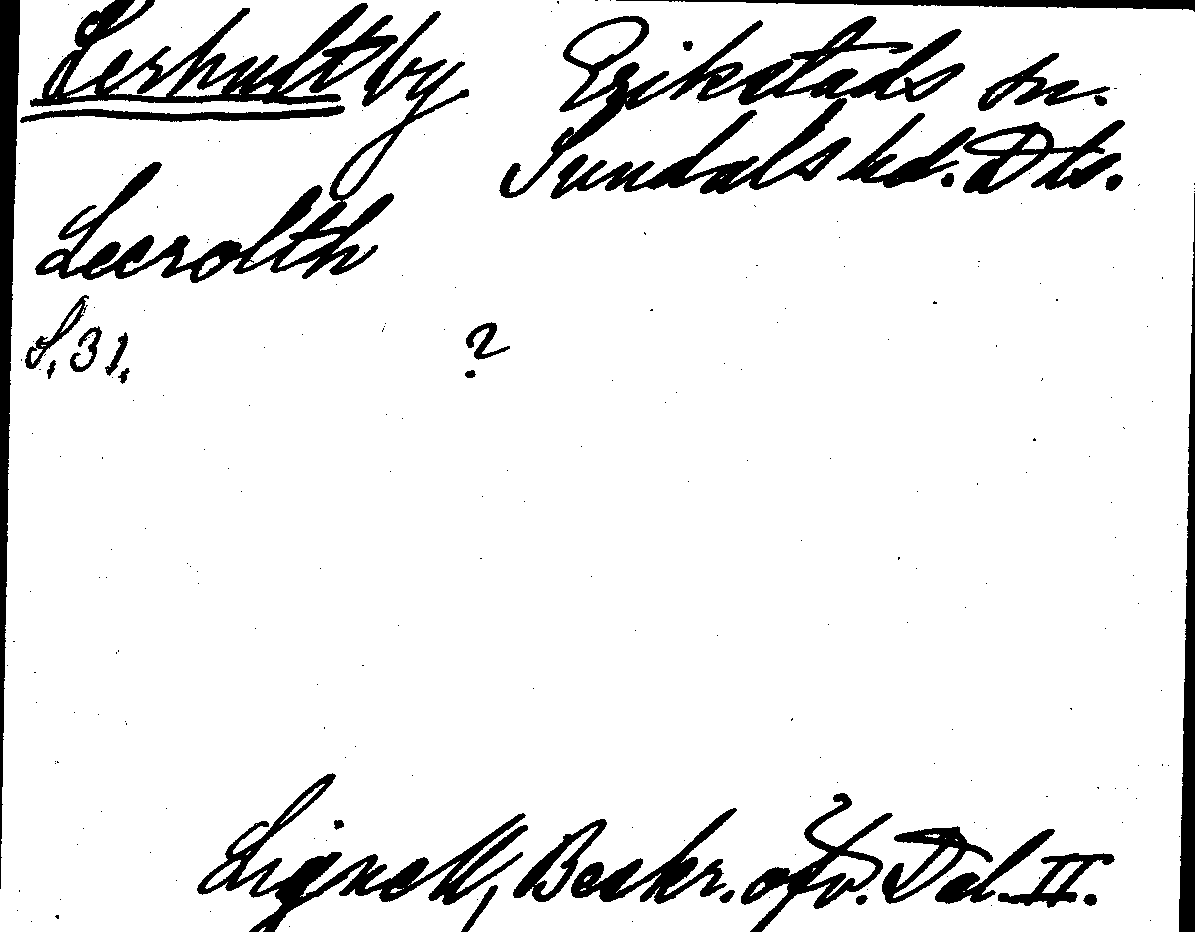 Lerhult by Erikstads sn.
Sundals hd. Dls.
Leerolth
S. 31. ?
Lignell, Beskr. öfv. Dal. II.